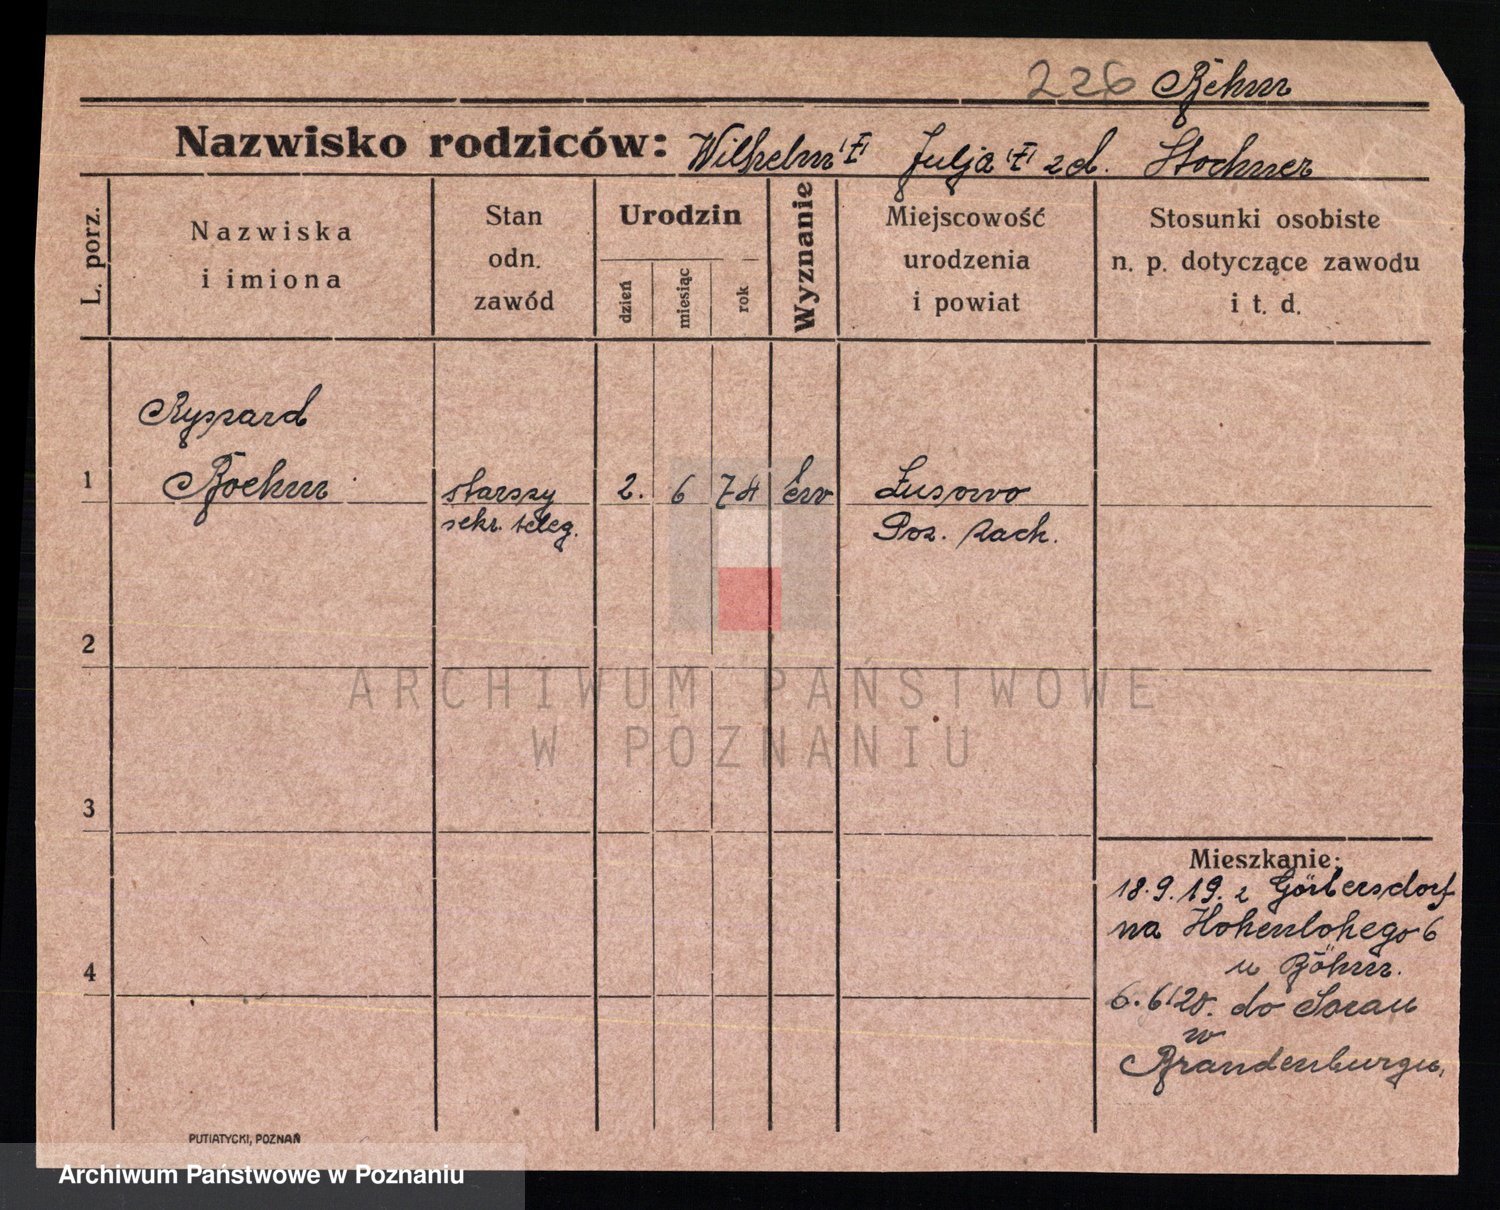 226 Böhm
Nazwisko rodziców: Wilhelm Julja zd. Stochner
L. porz.
Nazwiska i imiona
Stan odn. zawód
Urodzin
dzień
miesiąc
rok
Wyznanie
Miejscowość urodzenia i powiat
Stosunki osobiste n. p. dotyczące zawodu i t. d.
Ryszard
1 Boehm starszy 2. 6 74 Ew Lusowo
sekr. teleg. Poz. zach.
2
3
4
ARCHIWUM PAŃSTWOWE
W POZNANIU
Mieszkanie:
18.9.19. z Görbersdorf
na Hohenlohego 6
u Böhm.
6.6.20. do Sorau
w
Brandenburgu,
PUTIATYCKI, POZNAŃ
Archiwum Państwowe w Poznaniu